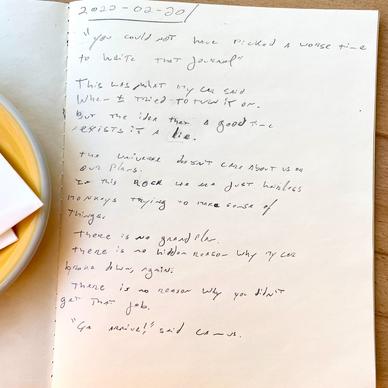 2022-02-20
"you could not have picked a worse time
to write that journal"
This was what my car said
when I tried to turn it on.
But the idea that a good time
exists it a lie.
the universe doesn't care about us or
our plans.
In this rock we are just hairless
monkeys trying to make sense of
things.
there is no grand plan.
there is no hidden reason why my car
broke down again.
There is no reason why you didn't
get that job.
said